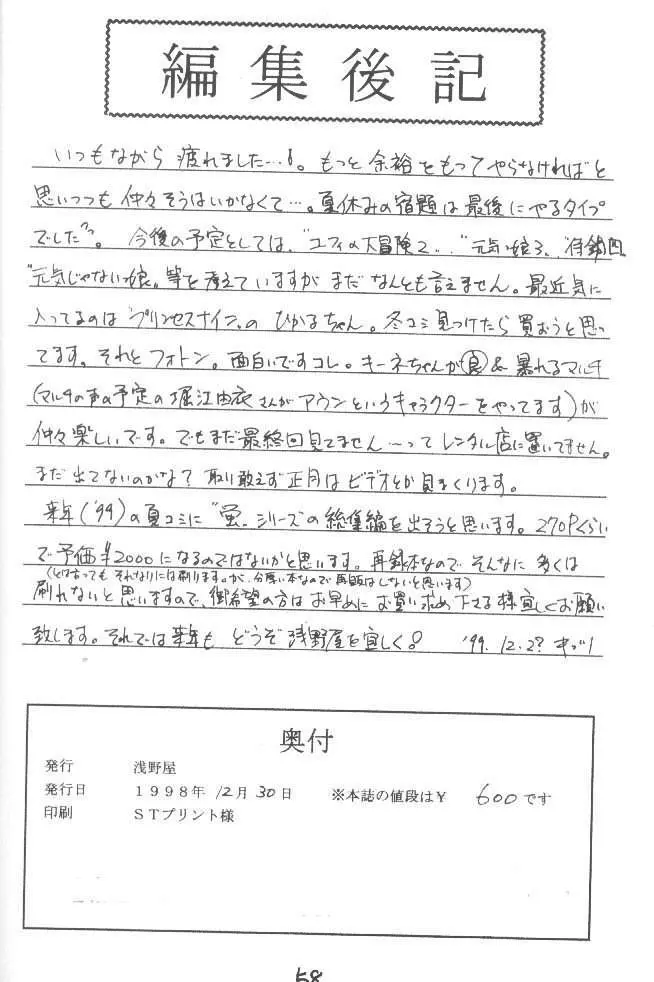 編集後記
いつもながら 疲れました…。もっと 余裕をもって やらなければ と
思いつつも 仲々 そうはいかなくて…。夏休みの宿題は最後にやるタイプ
でした。 今後の予定としては、"ユフィの大冒険2" "元気っ娘3"
"元気じゃない娘"等を考えていますが まだ なんとも言えません。最近気に
入ってるのは"プリンセスナイン"の ひかるちゃん。冬コミ見つけたら買おうと思っ
てます。それと フォトン。面白いです コレ。キーネちゃんが 良 & 暴れるマルチ
(マルチの声の予定の 堀江由衣さんが アウンというキャラクターを やってます)が
仲々楽しいです。でもまだ最終回見てません…って レンタル店に置いてません。
まだ 出てないのかな? 取り敢えず 正月は ビデオとか 見まくります。
来年('99)の夏コミに"蛍"シリーズの総集編を出そうと思います。270Pくらい
で予価¥2000になるのではないかと思います。再録本なので そんなに 多くは
(とは言っても それなりには刷りますが、分厚い本なので再販はしないと思います)
刷れないと思いますので、御希望の方は お早めに お買い求め下さる様 宜しくお願い
致します。それでは 来年も どうぞ 浅野屋を 宜しく! '99.12.2?
奥付
発行 浅野屋
発行日 1998年 12月 30日 ※本誌の値段は¥ 600です
印刷 STプリント様
58